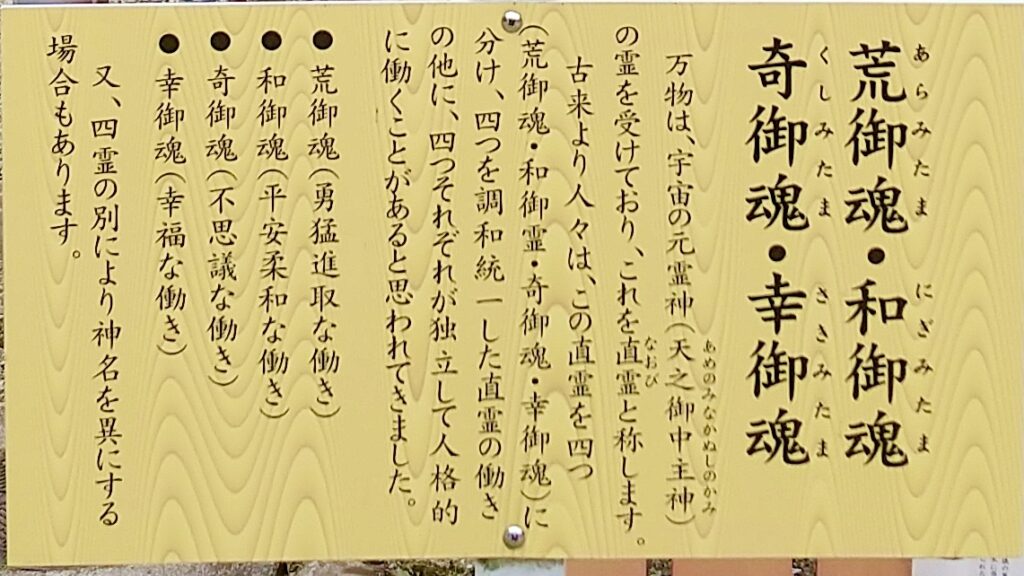 荒御魂・和御魂
あらみたま にぎみたま
奇御魂・幸御魂
くしみたま さきみたま
万物は、宇宙の元霊神（天之御中主神）
あめのみなかぬしのかみ
の霊を受けており、これを直霊と称します。
なおび
古来より人々は、この直霊を四つ
（荒御魂・和御霊・奇御魂・幸御魂）に
分け、四つを調和統一した直霊の働き
の他に、四つそれぞれが独立して人格的
に働くことがあると思われてきました。
●荒御魂（勇猛進取な働き）
●和御魂（平安柔和な働き）
●奇御魂（不思議な働き）
●幸御魂（幸福な働き）
又、四霊の別により神名を異にする
場合もあります。